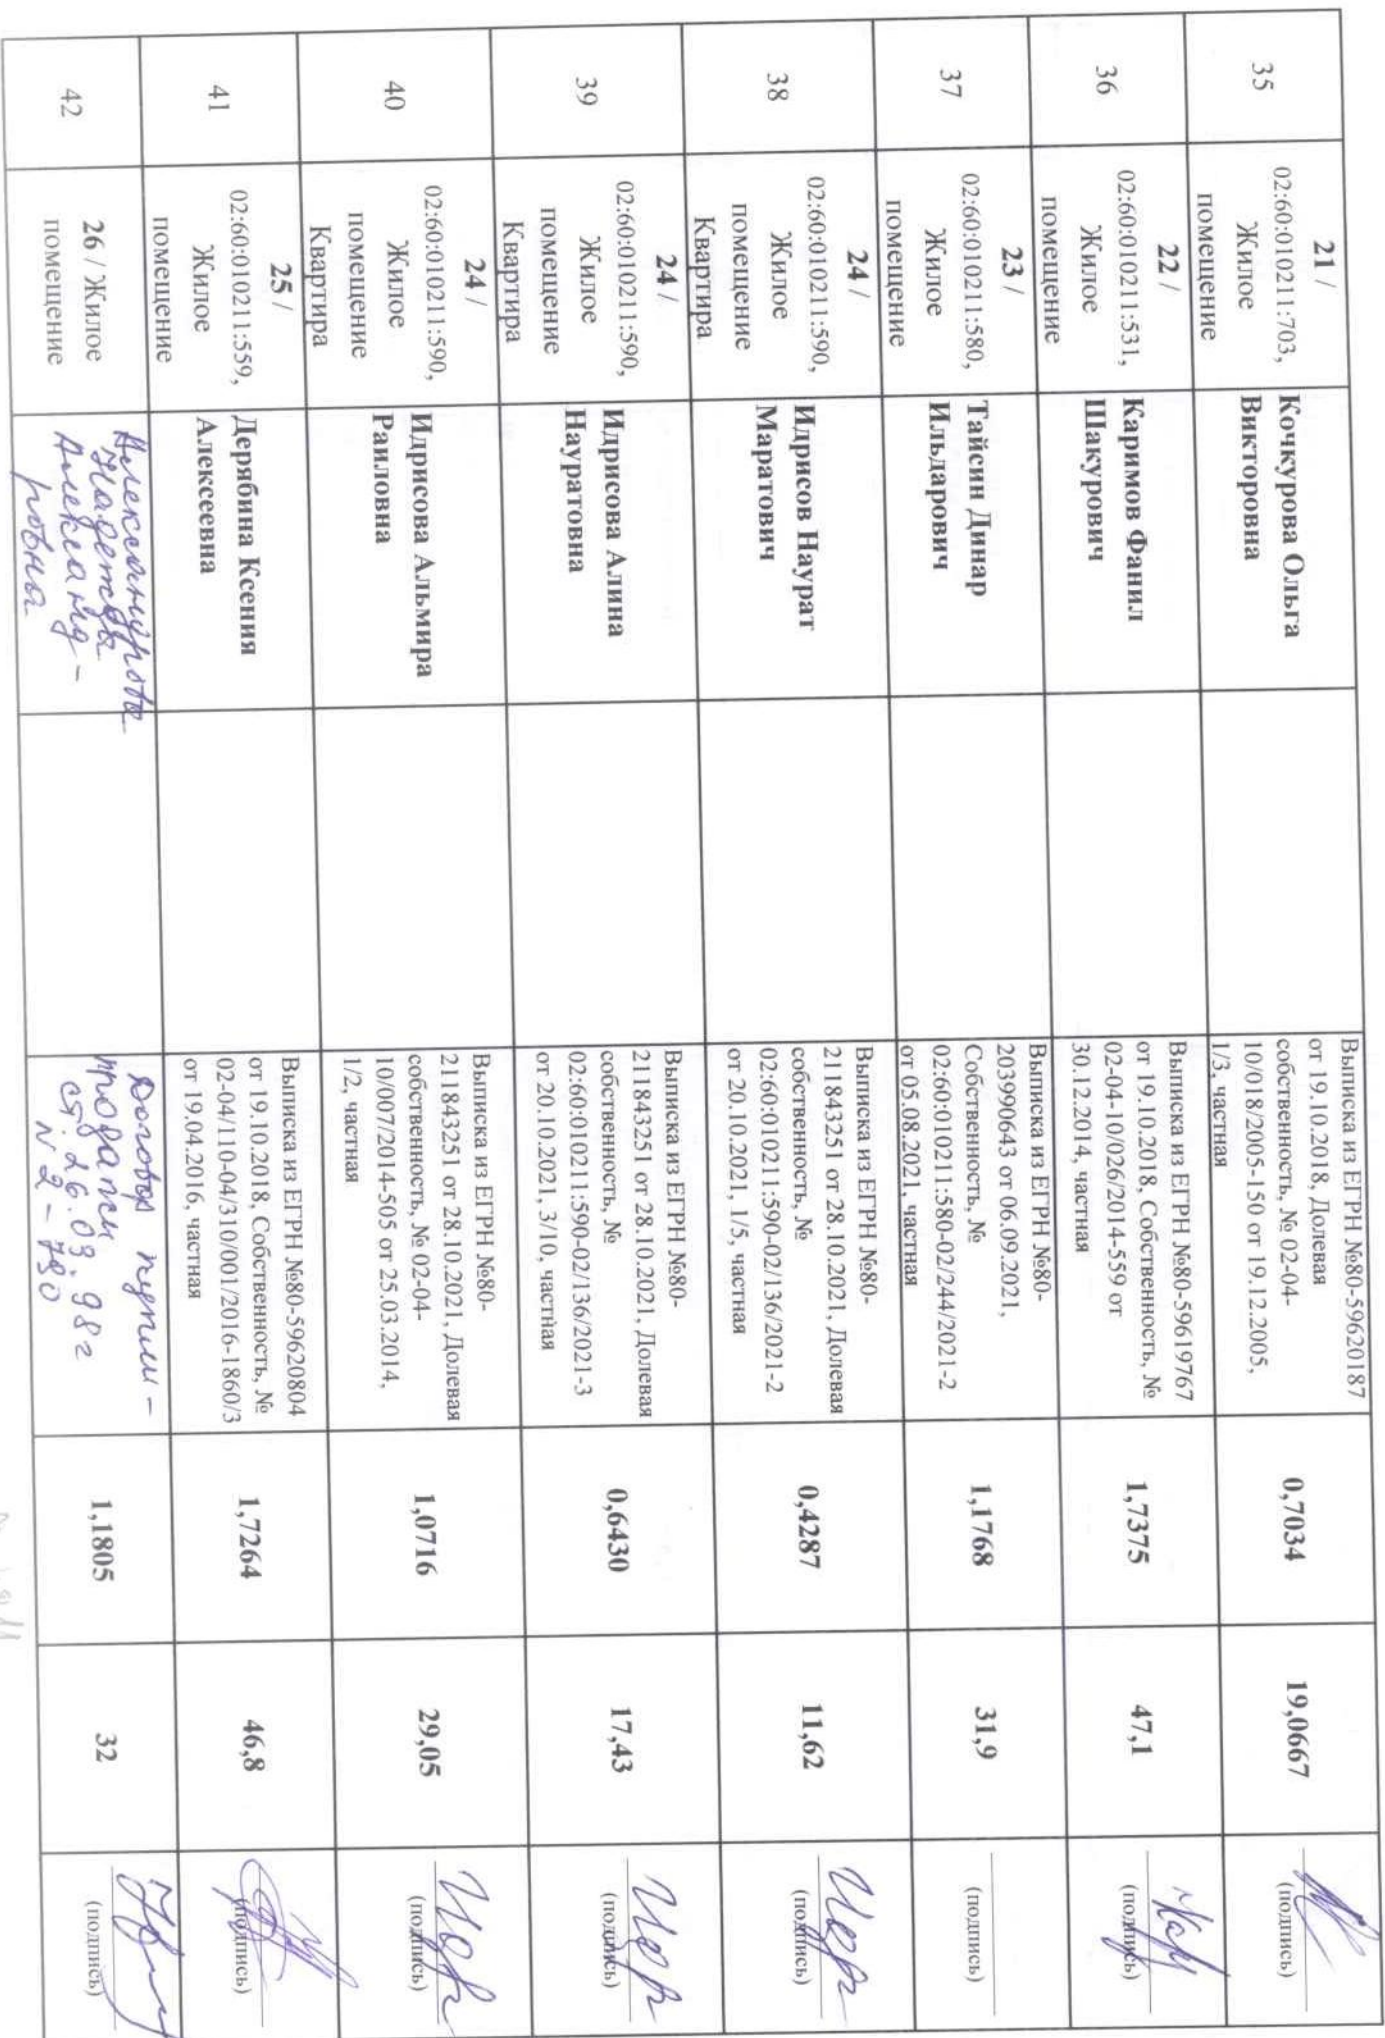 35
21 /
02:60:010211:703,
Жилое
помещение
Кочкурова Ольга
Викторовна
Выписка из ЕГРН №80-59620187
от 19.10.2018, Долевая
собственность, № 02-04-
10/018/2005-150 от 19.12.2005,
1/3, частная
0,7034
19,0667
(подпись)
36
22 /
02:60:010211:531,
Жилое
помещение
Каримов Фанил
Шакурович
Выписка из ЕГРН №80-59619767
от 19.10.2018, Собственность, №
02-04-10/026/2014-559 от
30.12.2014, частная
1,7375
47,1
(подпись)
37
23 /
02:60:010211:580,
Жилое
помещение
Тайсин Динар
Ильдарович
Выписка из ЕГРН №80-
203990643 от 06.09.2021,
Собственность, №
02:60:010211:580-02/244/2021-2
от 05.08.2021, частная
1,1768
31,9
(подпись)
38
24 /
02:60:010211:590,
Жилое
помещение
Квартира
Идрисов Наурат
Маратович
Выписка из ЕГРН №80-
211843251 от 28.10.2021, Долевая
собственность, №
02:60:010211:590-02/136/2021-2
от 20.10.2021, 1/5, частная
0,4287
11,62
(подпись)
39
24 /
02:60:010211:590,
Жилое
помещение
Квартира
Идрисова Алина
Науратовна
Выписка из ЕГРН №80-
211843251 от 28.10.2021, Долевая
собственность, №
02:60:010211:590-02/136/2021-3
от 20.10.2021, 3/10, частная
0,6430
17,43
(подпись)
40
24 /
02:60:010211:590,
Жилое
помещение
Квартира
Идрисова Альмира
Раиловна
Выписка из ЕГРН №80-
211843251 от 28.10.2021, Долевая
собственность, № 02-04-
10/007/2014-505 от 25.03.2014,
1/2, частная
1,0716
29,05
(подпись)
41
25 /
02:60:010211:559,
Жилое
помещение
Дерябина Ксения
Алексеевна
Выписка из ЕГРН №80-59620804
от 19.10.2018, Собственность, №
02-04/110-04/310/001/2016-1860/3
от 19.04.2016, частная
1,7264
46,8
(подпись)
42
26 / Жилое
помещение
Александрова
Надежда
Александ-
ровна
Договор купли-
продажи
от 26.03.98г
N 2-780
1,1805
32
(подпись)